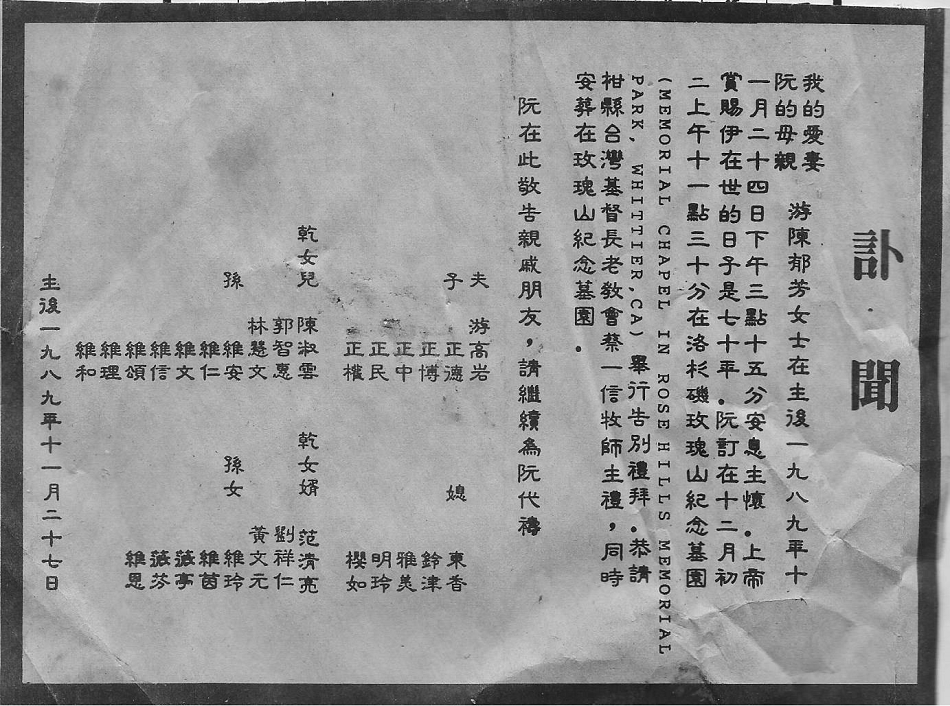 訃.聞
我的愛妻
阮的母親
游陳郁芳女士在主後一九八九年十
一月二十四日下午三點十五分安息主懷.上帝
賞賜伊在世的日子是七十年.阮訂在十二月初
二上午十一點三十分在洛杉磯玫瑰山紀念墓園
(MEMORIAL CHAPEL IN ROSE HILLS MEMORIAL
PARK, WHITTIER,CA) 舉行告別禮拜.恭請
柑縣台灣基督長老教會蔡一信牧師主禮,同時
安葬在玫瑰山紀念墓園.
阮在此敬告親戚朋友,請繼續為阮代禱
夫 游高岩
子 正德 媳 東香
正博 鈴津
正中 雅美
正民 明玲
正權 櫻如
乾女兒 陳淑雲 乾女婿 范清亮
郭智惠 劉祥仁
林慧文 黃文元
孫 維安 孫女 維玲
維仁 維茵
維文 薇亭
維信 薇芬
維頌 維恩
維理
維和
主後一九八九年十一月二十七日